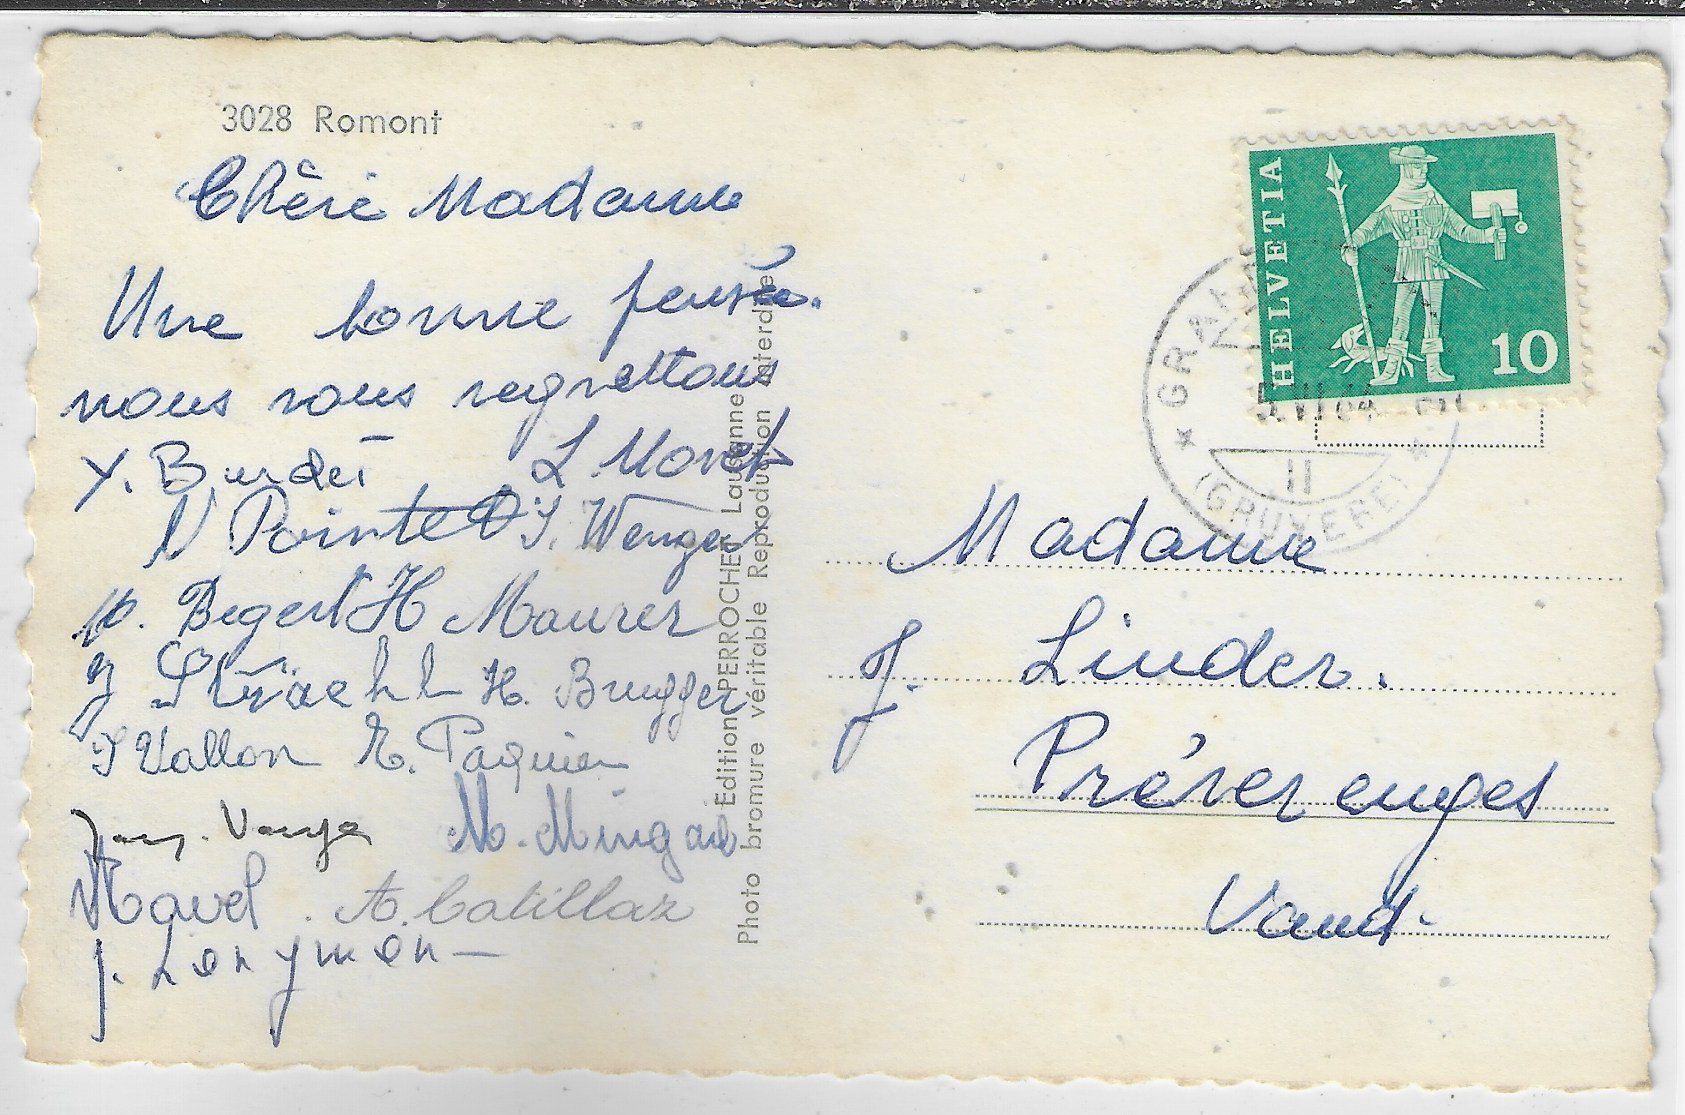 3028 Romont
Chère Madame
Une bonne pensée.
nous vous regrettons
Y. Burdet L. Moret
N Pointet Y. Wenger
p. Begert H Maurer
J Straehl H. Brugger
J Vallon E. Paquier
M. Mingard
Ravel. A. Catillaz
J.
Edition PERROCHET Lausanne
Photo bromure véritable Reproduction interdite
HELVETIA
10
GRA
5.VI 64
II
(GRUYERE)
Madame
J. Linder.
Préverenges
Vaud.